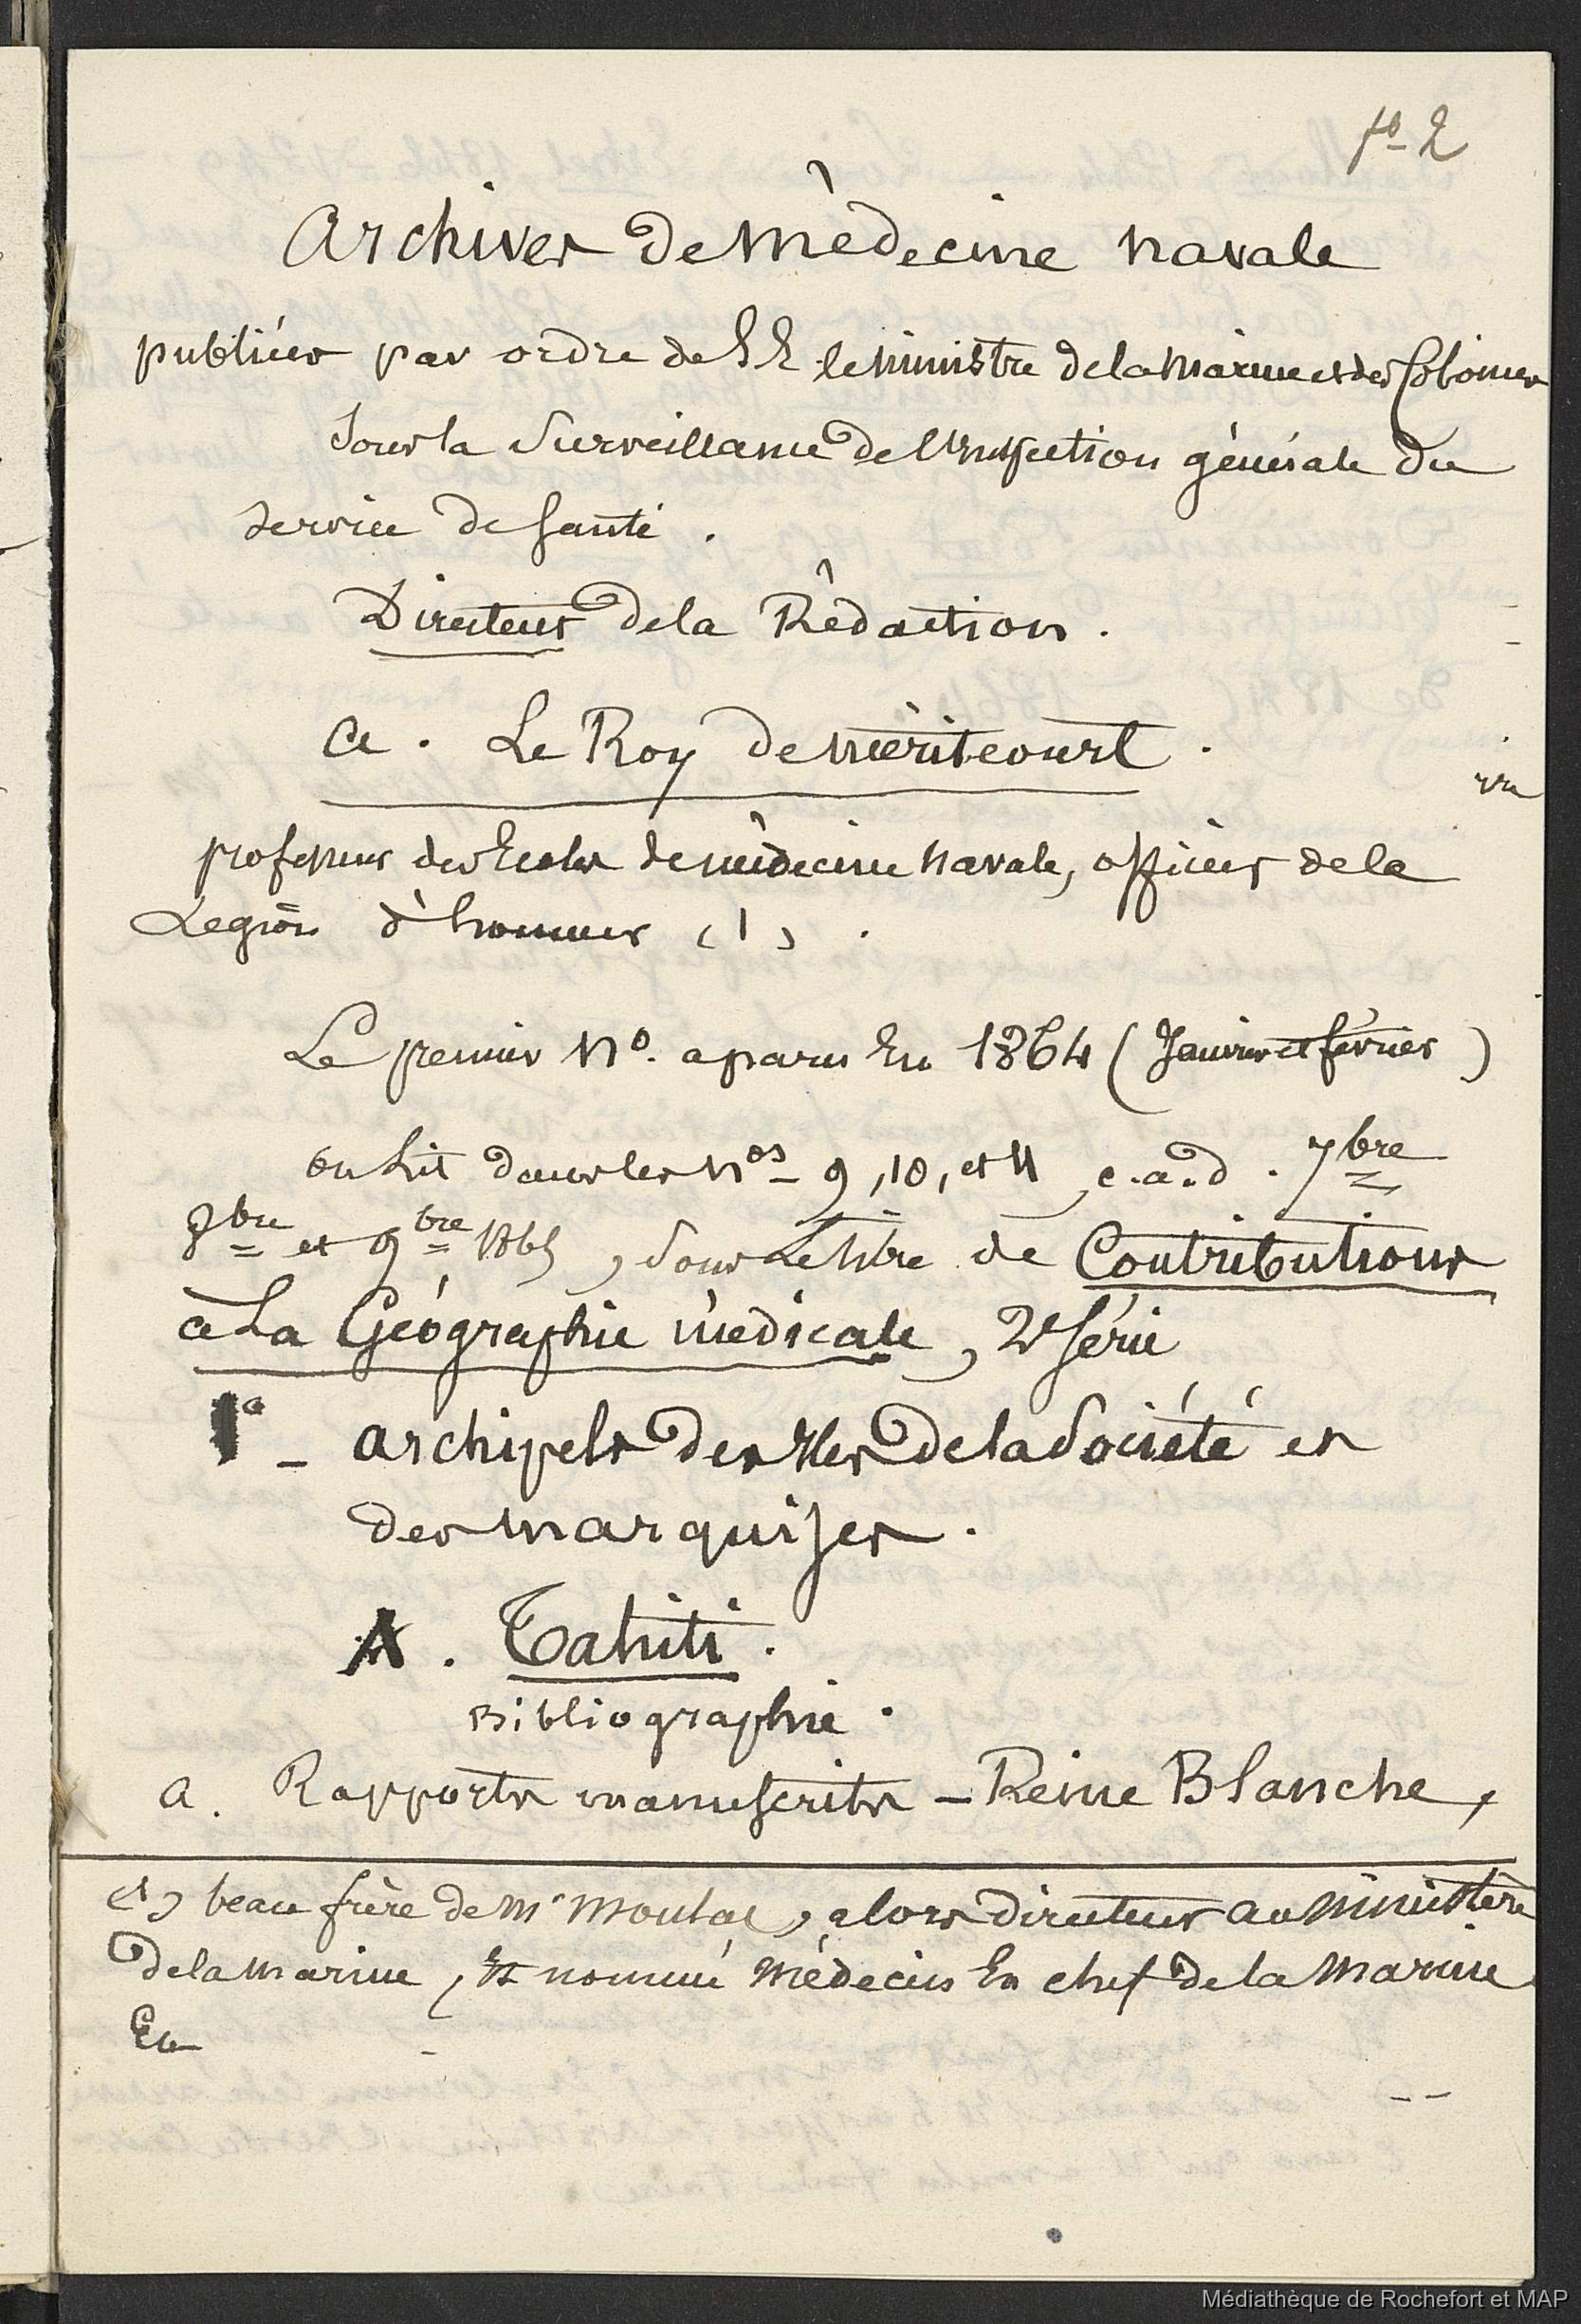 fo 2
Archives de Médecine navale
publiées par ordre de S E le ministre de la marine et des Colonies
sous la surveillance de l'Inspection générale du
service de santé.
Directeur de la Rédaction.
A. Le Roy de Méricourt.
professeur des Ecoles de médecine navale, officier de la
Légion d'honneur (1).
Le premier No. a paru En 1864 (Janvier et février)
on lit dans les Nos 9, 10, et 11, c.a.d. 7bre
8bre et 9bre 1865, sous Le titre de Contributions
à La Géographie médicale, 2e série
1o - archipels des Iles de la Société et
des marquises.
A. Tahiti.
Bibliographie.
a. Rapports manuscrits - Reine Blanche,
(1) beau frère de Mr Moulac, alors directeur au Ministère
de la Marine, Et nommé Médecin En chef de la Marine
En
Médiathèque de Rochefort et MAP